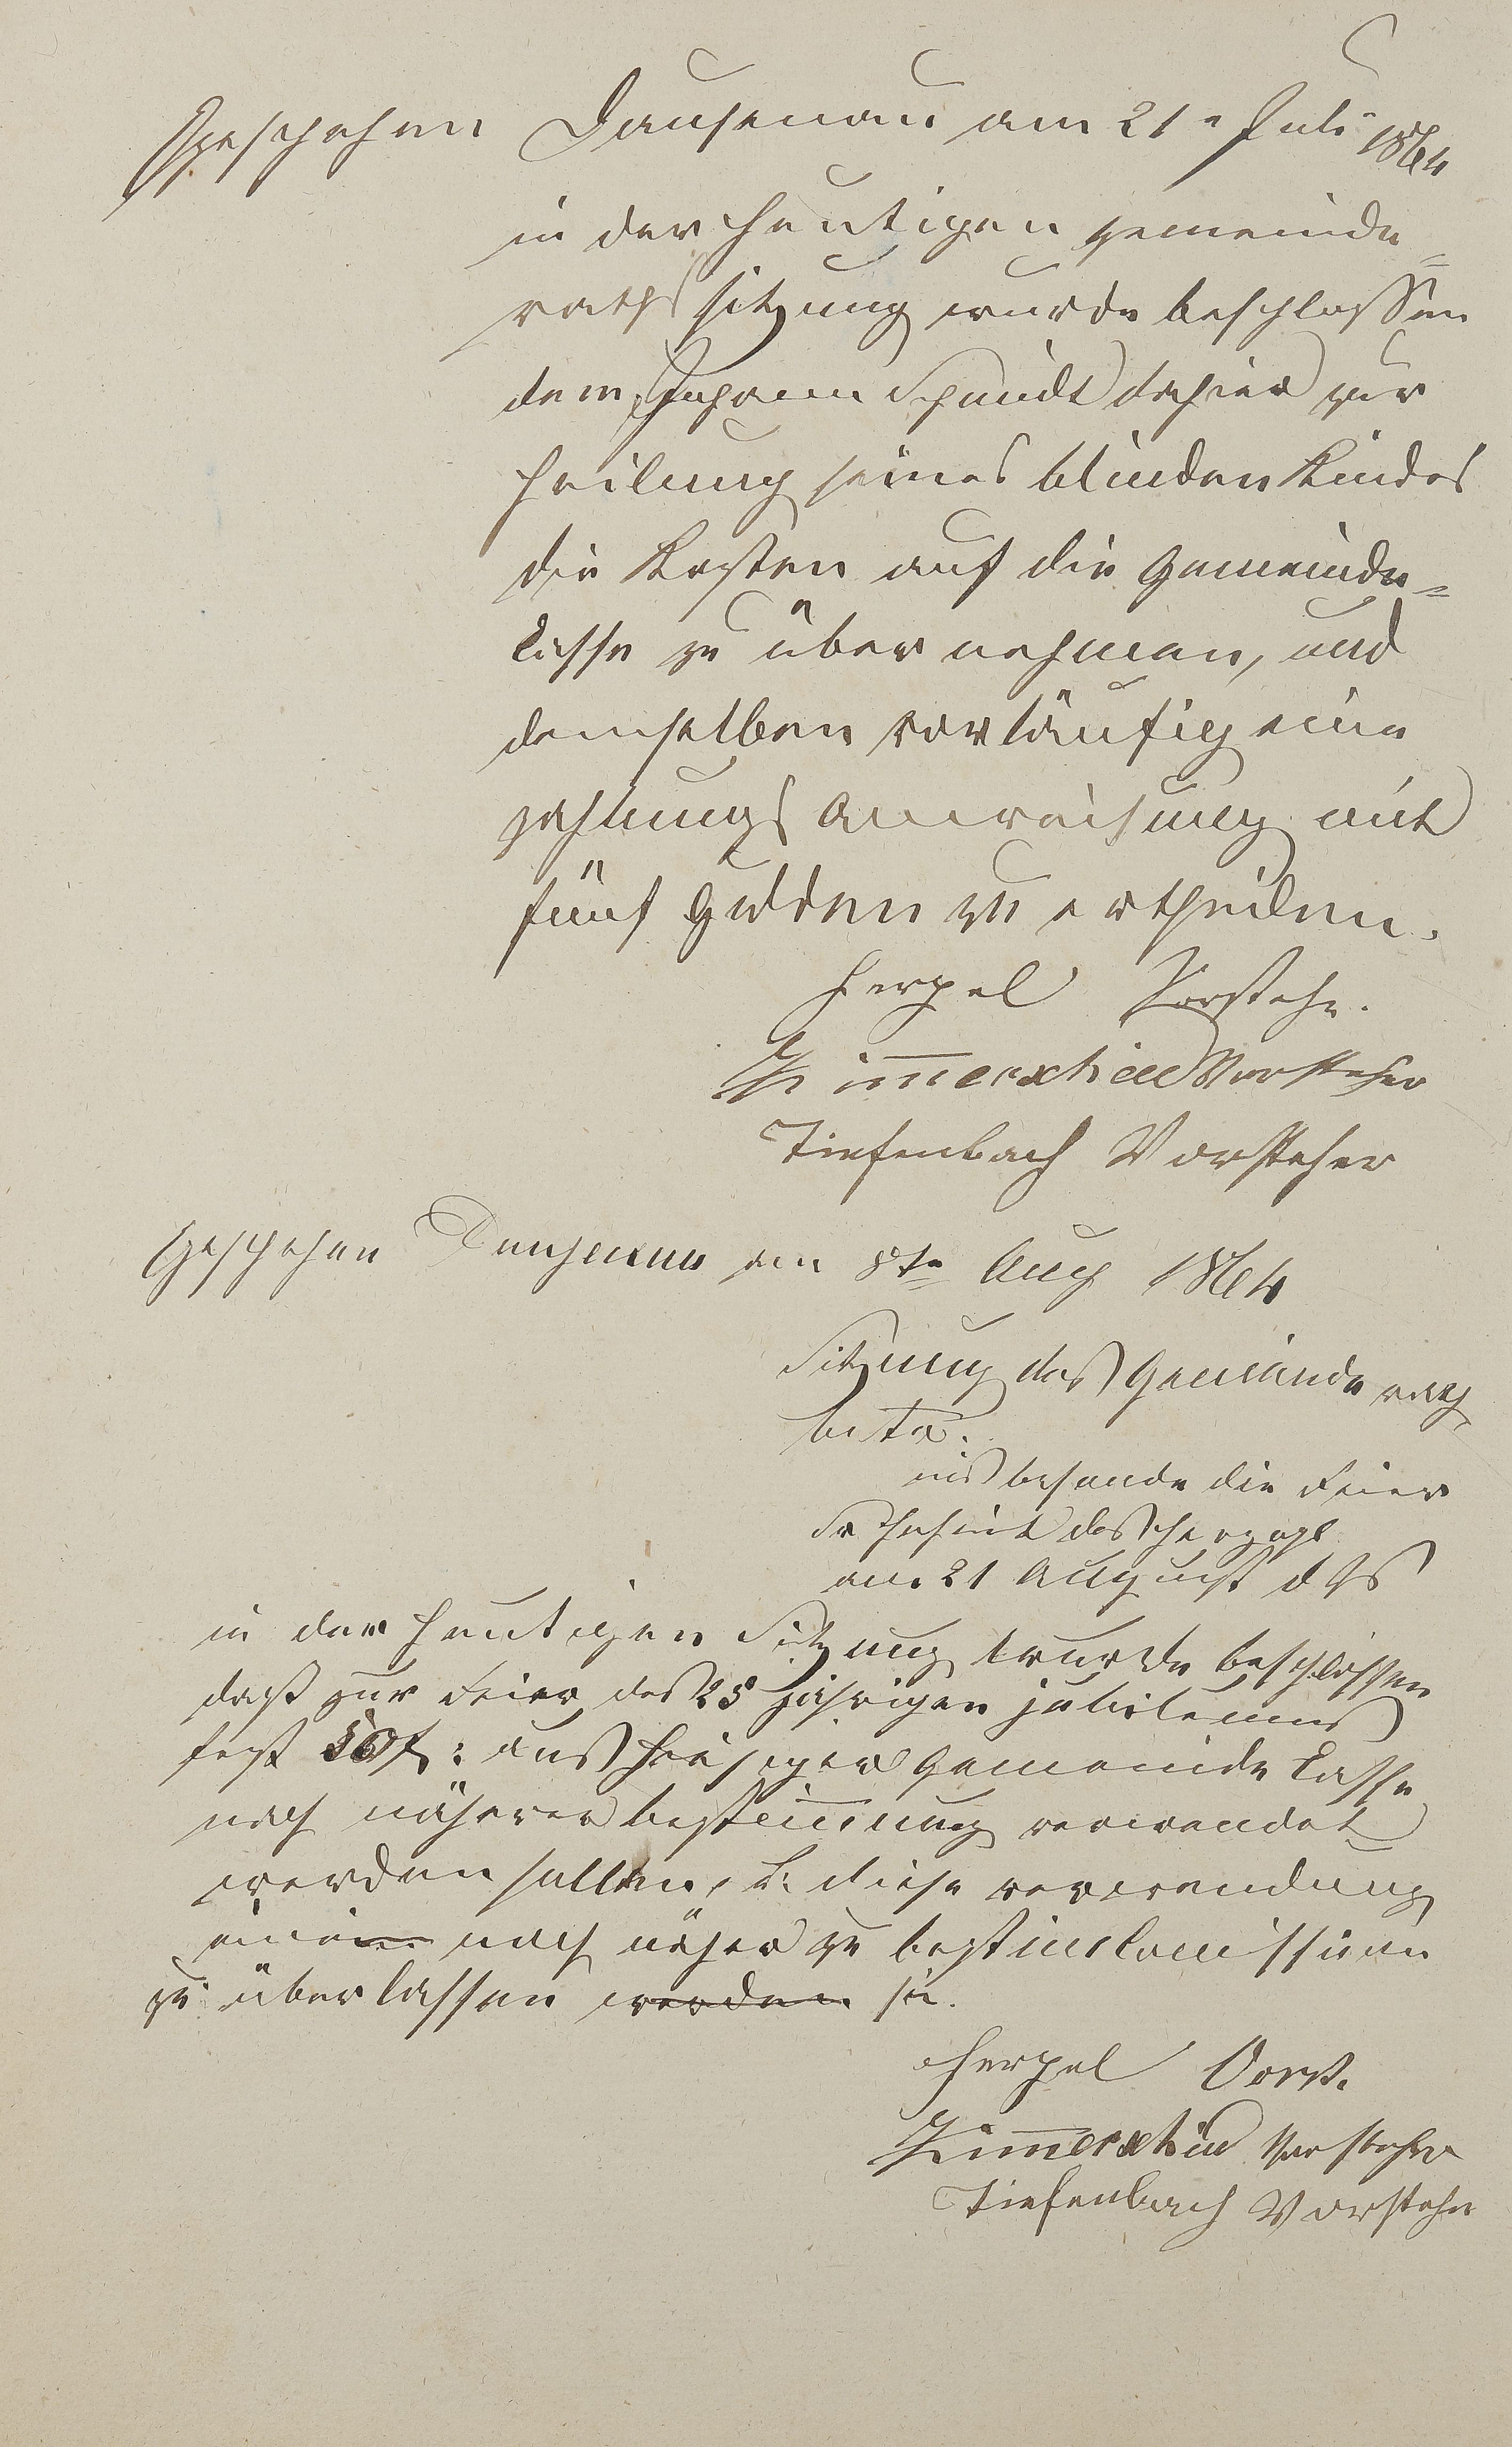 Geschehen Dausenau am 21 Juli 1864
in der heutigen gemeinde=
raths sitzung wurde beschlossen
dem Johann Schmidt dahier zur
heilung seines blinden Kindes
die Kosten auf die Gemeinde=
Casse zu über nehmen, und
demselben vorläufig eine
zahlungs Anweisung mit
fünf Gulden zu ertheilen.
Herpel Vorstehr.
Vorsteher
Tiefenbach Vorsteher
Geschehen Dausenau am 8te Aug 1864
Sitzung des Gemeinde rath
betr.
die Feier
des herzogl
am 21 August d Js
in der heutigen Sitzung wurde beschlossen
daß zur Feier des 25 jährigen jubileums
fest 50 f: aus hiesiger Gemeinde Casse
nach näherer bestim̅ung verwendet
werden sollen, & diese verwendung
einem noch näher zu bestim Comission
zu überlassen werden sei.
Herpel Vorst.
Vorsteher
Tiefenbach Vorsteher